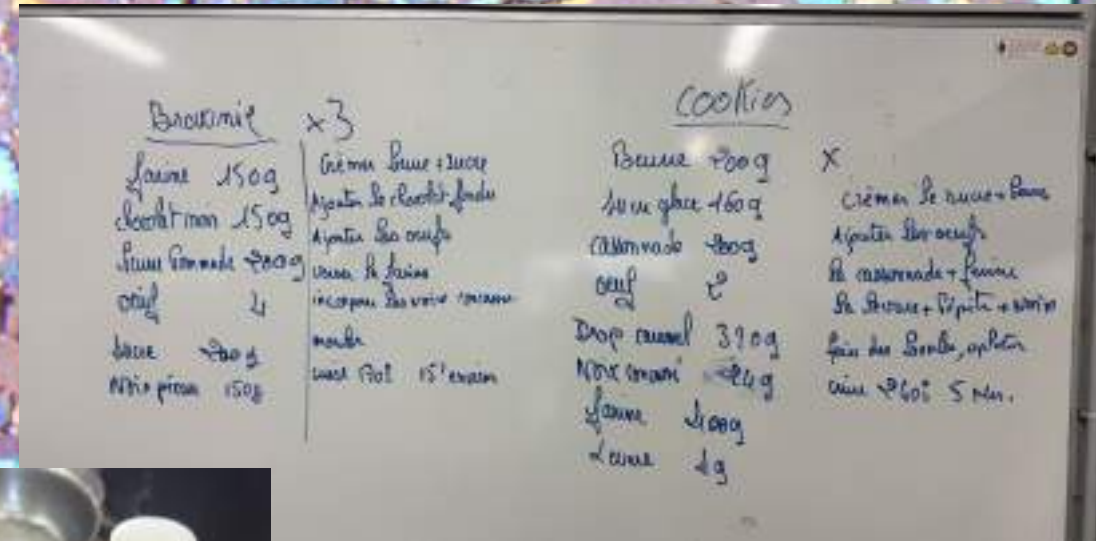 Brownie x3
farine 150g
chocolat noir 150g
beurre Pommade 200g
oeuf 4
sucre 200g
Noix pécan 150g
Crémer beurre + sucre
Ajouter le chocolat fondu
Ajouter les oeufs
verser la farine
incorporer les noix
mouler
15' environ
Cookies
Beurre 200g
sucre glace 160g
cassonnade 200g
oeuf 2
Drop 390g
Noix
farine 400g
Levure
x
Crémer le sucre + beurre
Ajouter les oeufs
la cassonnade + farine
la levure + Pépite + noix
faire des boules, aplatir
5 Min.